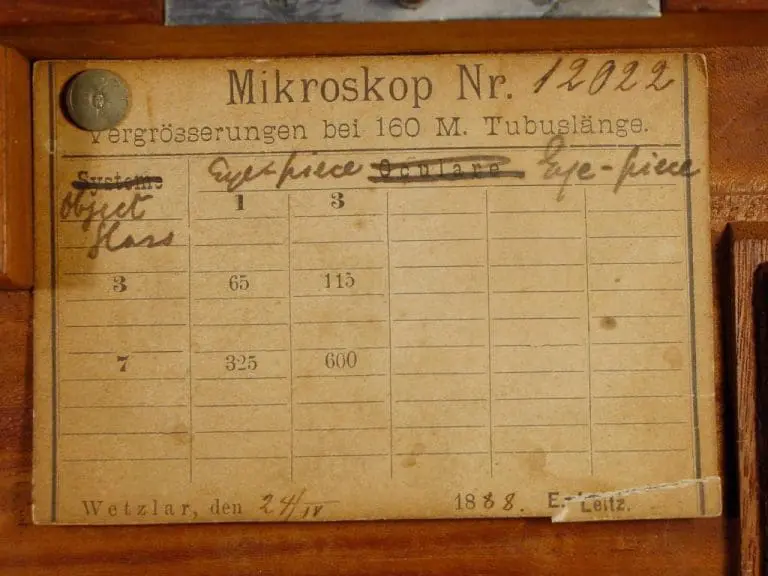 Mikroskop Nr. 12022
Vergrösserungen bei 160 M. Tubuslänge.
Systeme Eye-piece Oculare Eye-piece
Object 1 3
Glass
3 65 115
7 325 600
Wetzlar, den 24/IV 1888. E. Leitz.